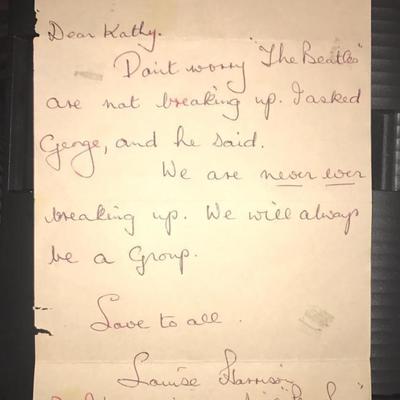 Dear Kathy.
Don't worry "The Beatles"
are not breaking up. I asked
George, and he said.
We are never ever
breaking up. We will always
be a Group.
Love to all.
Louise Harrison